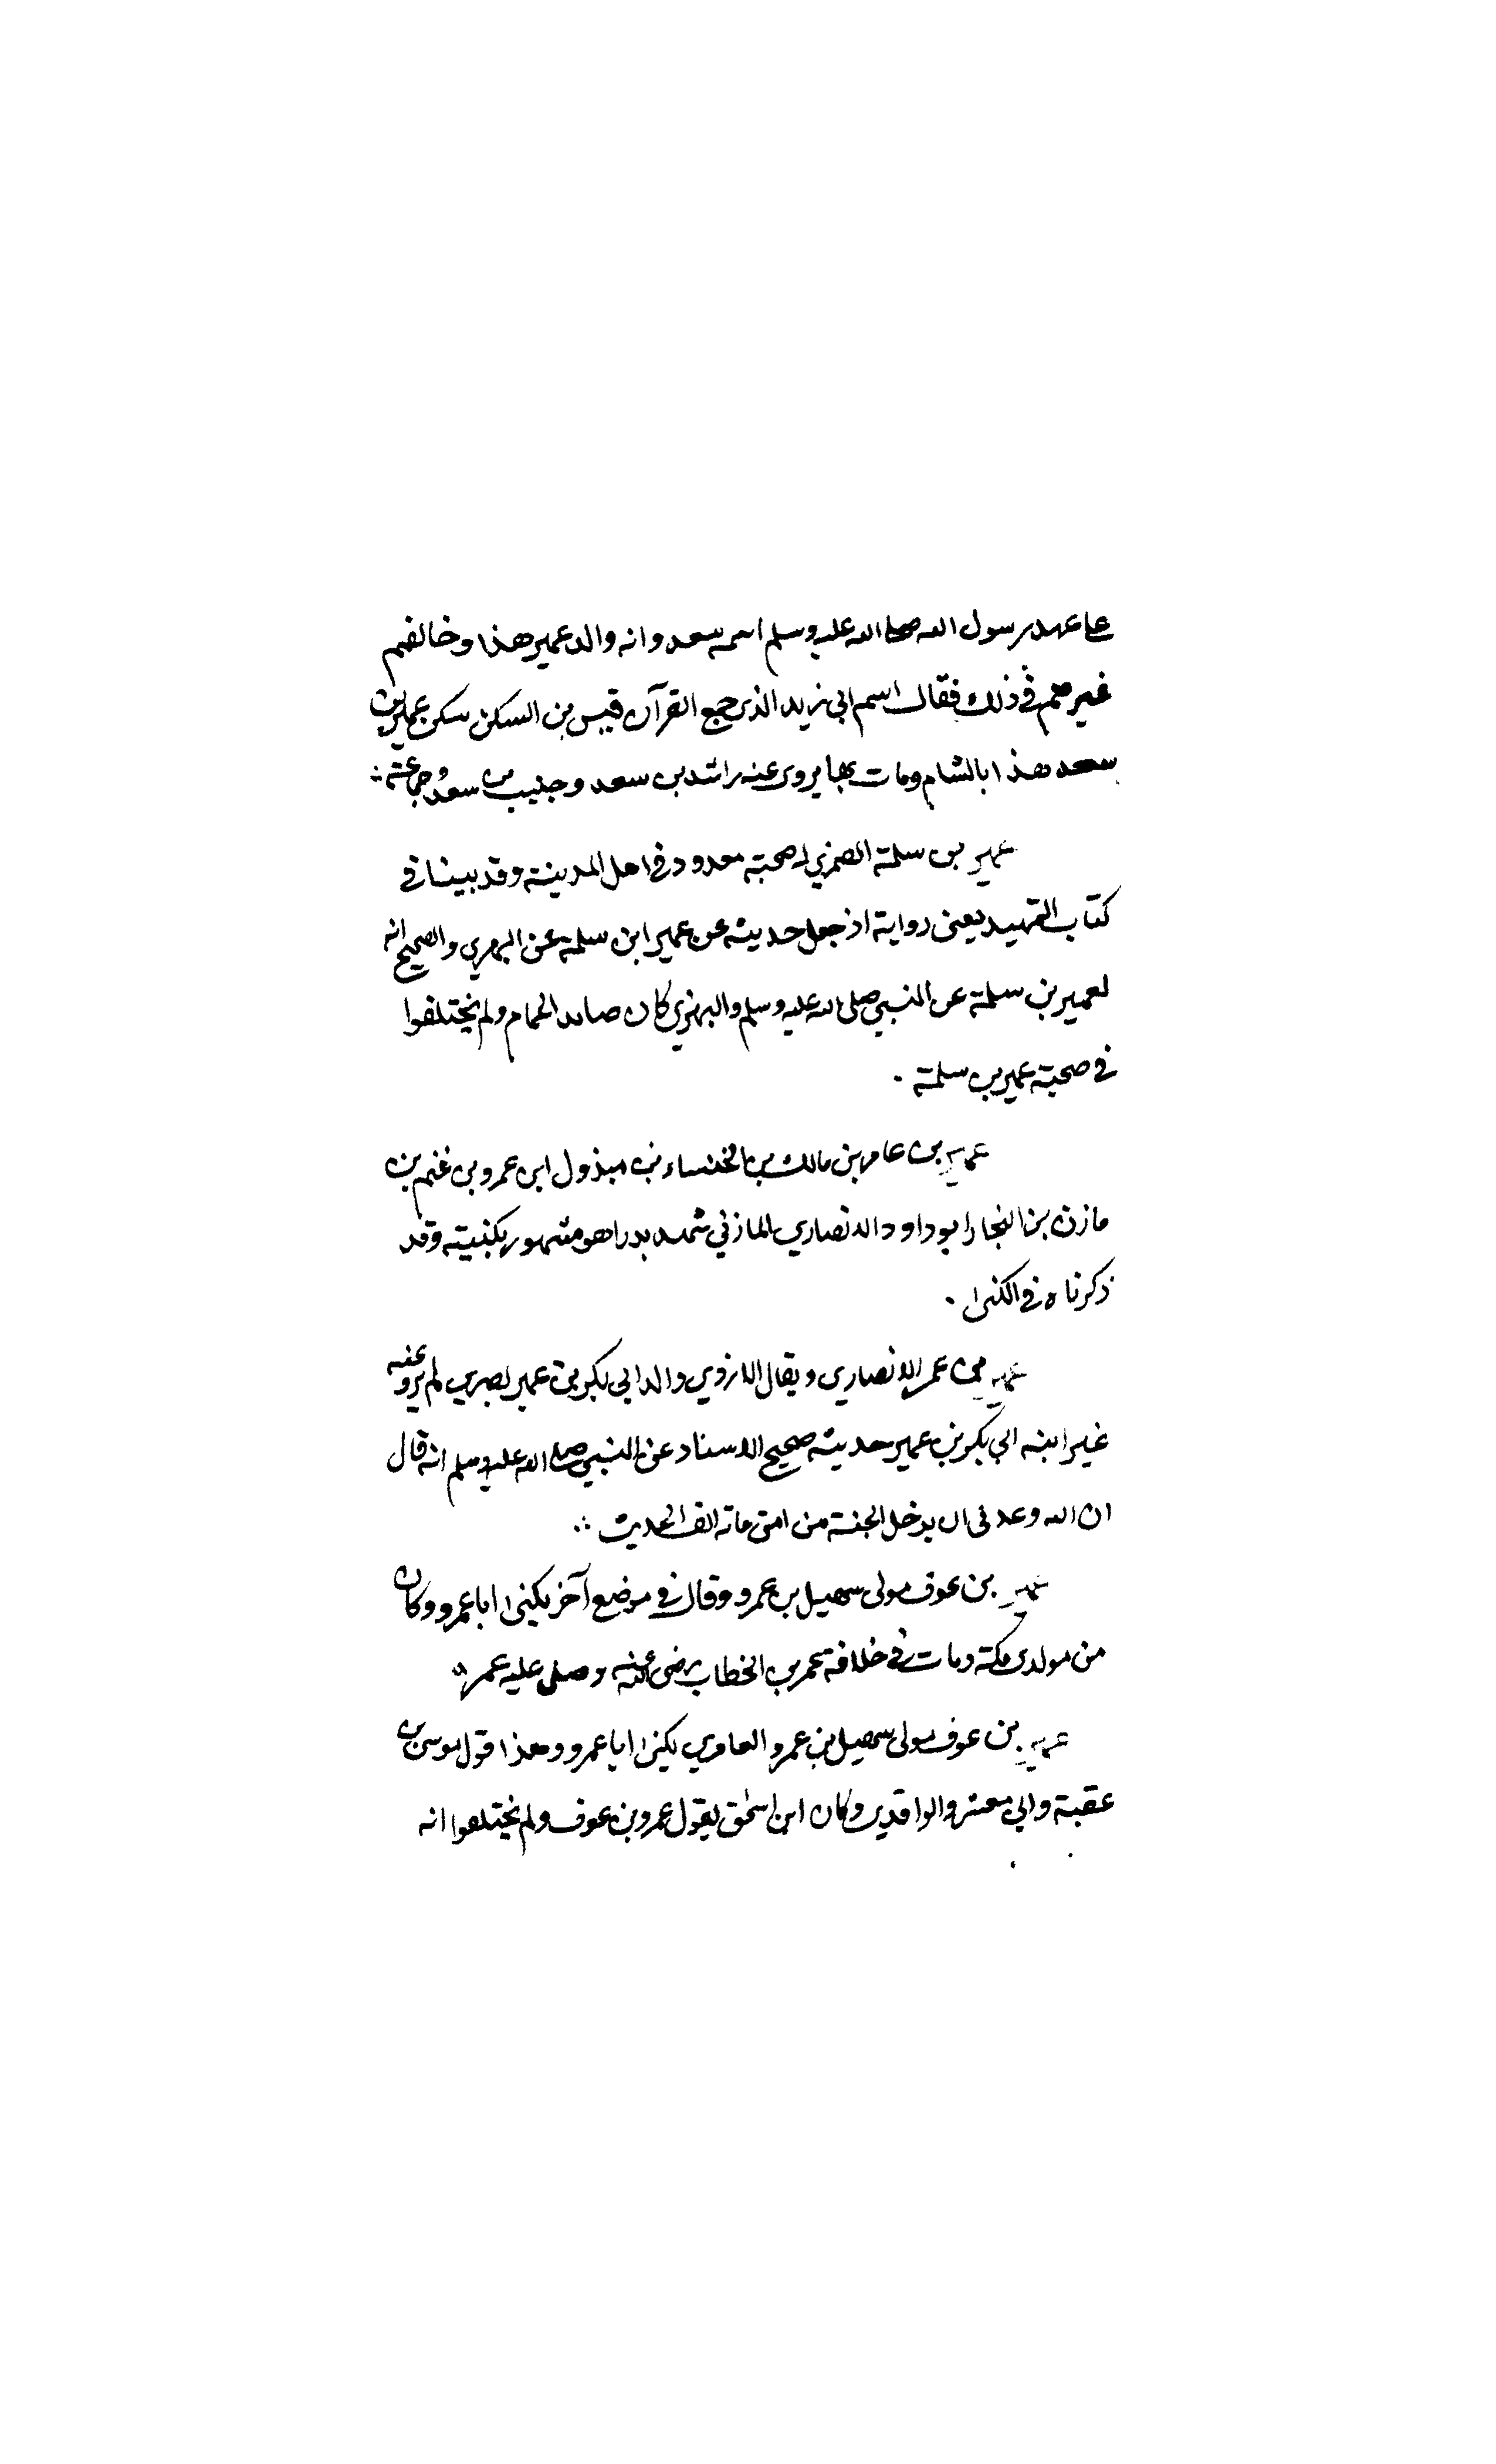 على عهد رسول الله صلى الله عليه وسلم اسمه سعد وانه والد عمير هذا وخالفهم
غيرهم في ذلك فقال اسم ابي زيد الذي جمع القرآن قيس بن السكن سكن عمير بن
سعد هذا بالشام ومات بها يروى عنه راشد بن سعد وحبيب بن سعد وجماعة
عمير بن سلمة الضمري له صحبة معدود في اهل المدينة وقد بينا في
كتاب التمهيد يعنى رواية اذ جعل حديثه عن عمير ابن سلمة عن البهزي والصحيح انه
لعمير بن سلمة عن النبي صلى الله عليه وسلم والبهزي كان صائد الحمام ولم يختلفوا
في صحبة عمير بن سلمة .
عمير بن عامر بن مالك بن الخنساء بن مبذول ابن عمرو بن غنم بن
مازن بن النجار ابو داود الانصاري المازني شهد بدرا هو مشهور بكنيته وقد
ذكرناه في الكنى .
عمير بن عمر الانصاري ويقال الازدي والد ابي بكر بن عمير بصري لم يرو عنه
غير ابنه ابي بكر بن عمير حديثه صحيح الاسناد عن النبي صلى الله عليه وسلم انه قال
ان الله وعدني ان يدخل الجنة من امتي مائة الف الحديث
عمير بن عوف مولى سهيل بن عمرو وقال في موضع آخر يكنى ابا عمرو وكان
من مولدي مكة ومات في خلافة عمر بن الخطاب رضي عنه وصلى عليه عمر
عمير بن عوف مولى سهيل بن عمرو العامري يكنى ابا عمرو وهذا قول موسى بن
عقبة وابي معشر والواقدي وكان ابن اسحق يقول عمرو بن عوف ولم يختلفوا انه